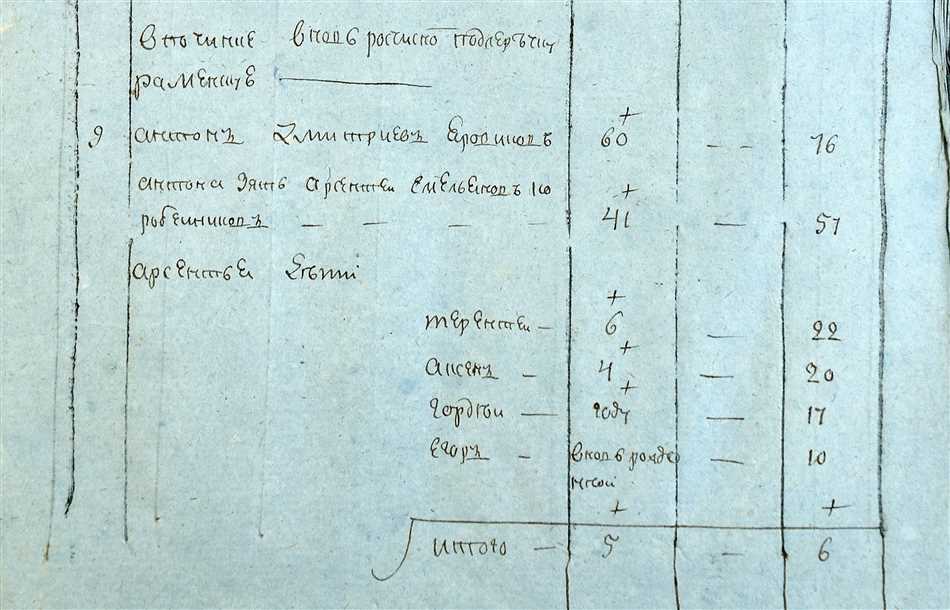 в починке вновь росписно подлеръчку
раменье —
+
9 антонъ дмитриевъ еро́пиковъ 60 — 76
антона зять арсентеи емельяновъ ко +
робеиниковъ — — — — 41 — 57
арсентьея дети
+
терентеи — 6 — 22
+
аксенъ — 4 — 20
+
гордеи — году — 17
егоръ — вновь рожде — 10
нной
+ +
итого — 5 — 6